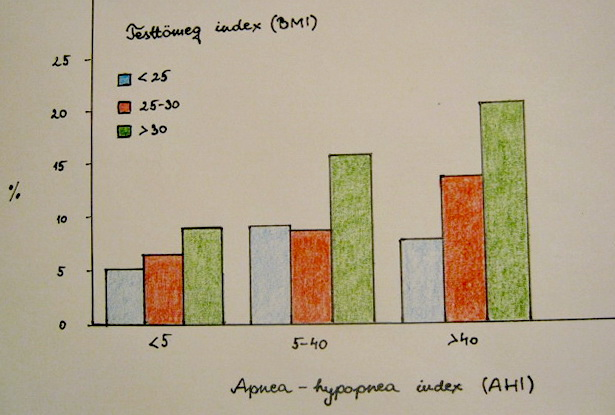 Testtömeg index (BMI)
<25
25-30
>30
25
20
15
10
5
0
%
<5
5-40
>40
Apnea - hypopnea index (AHI)